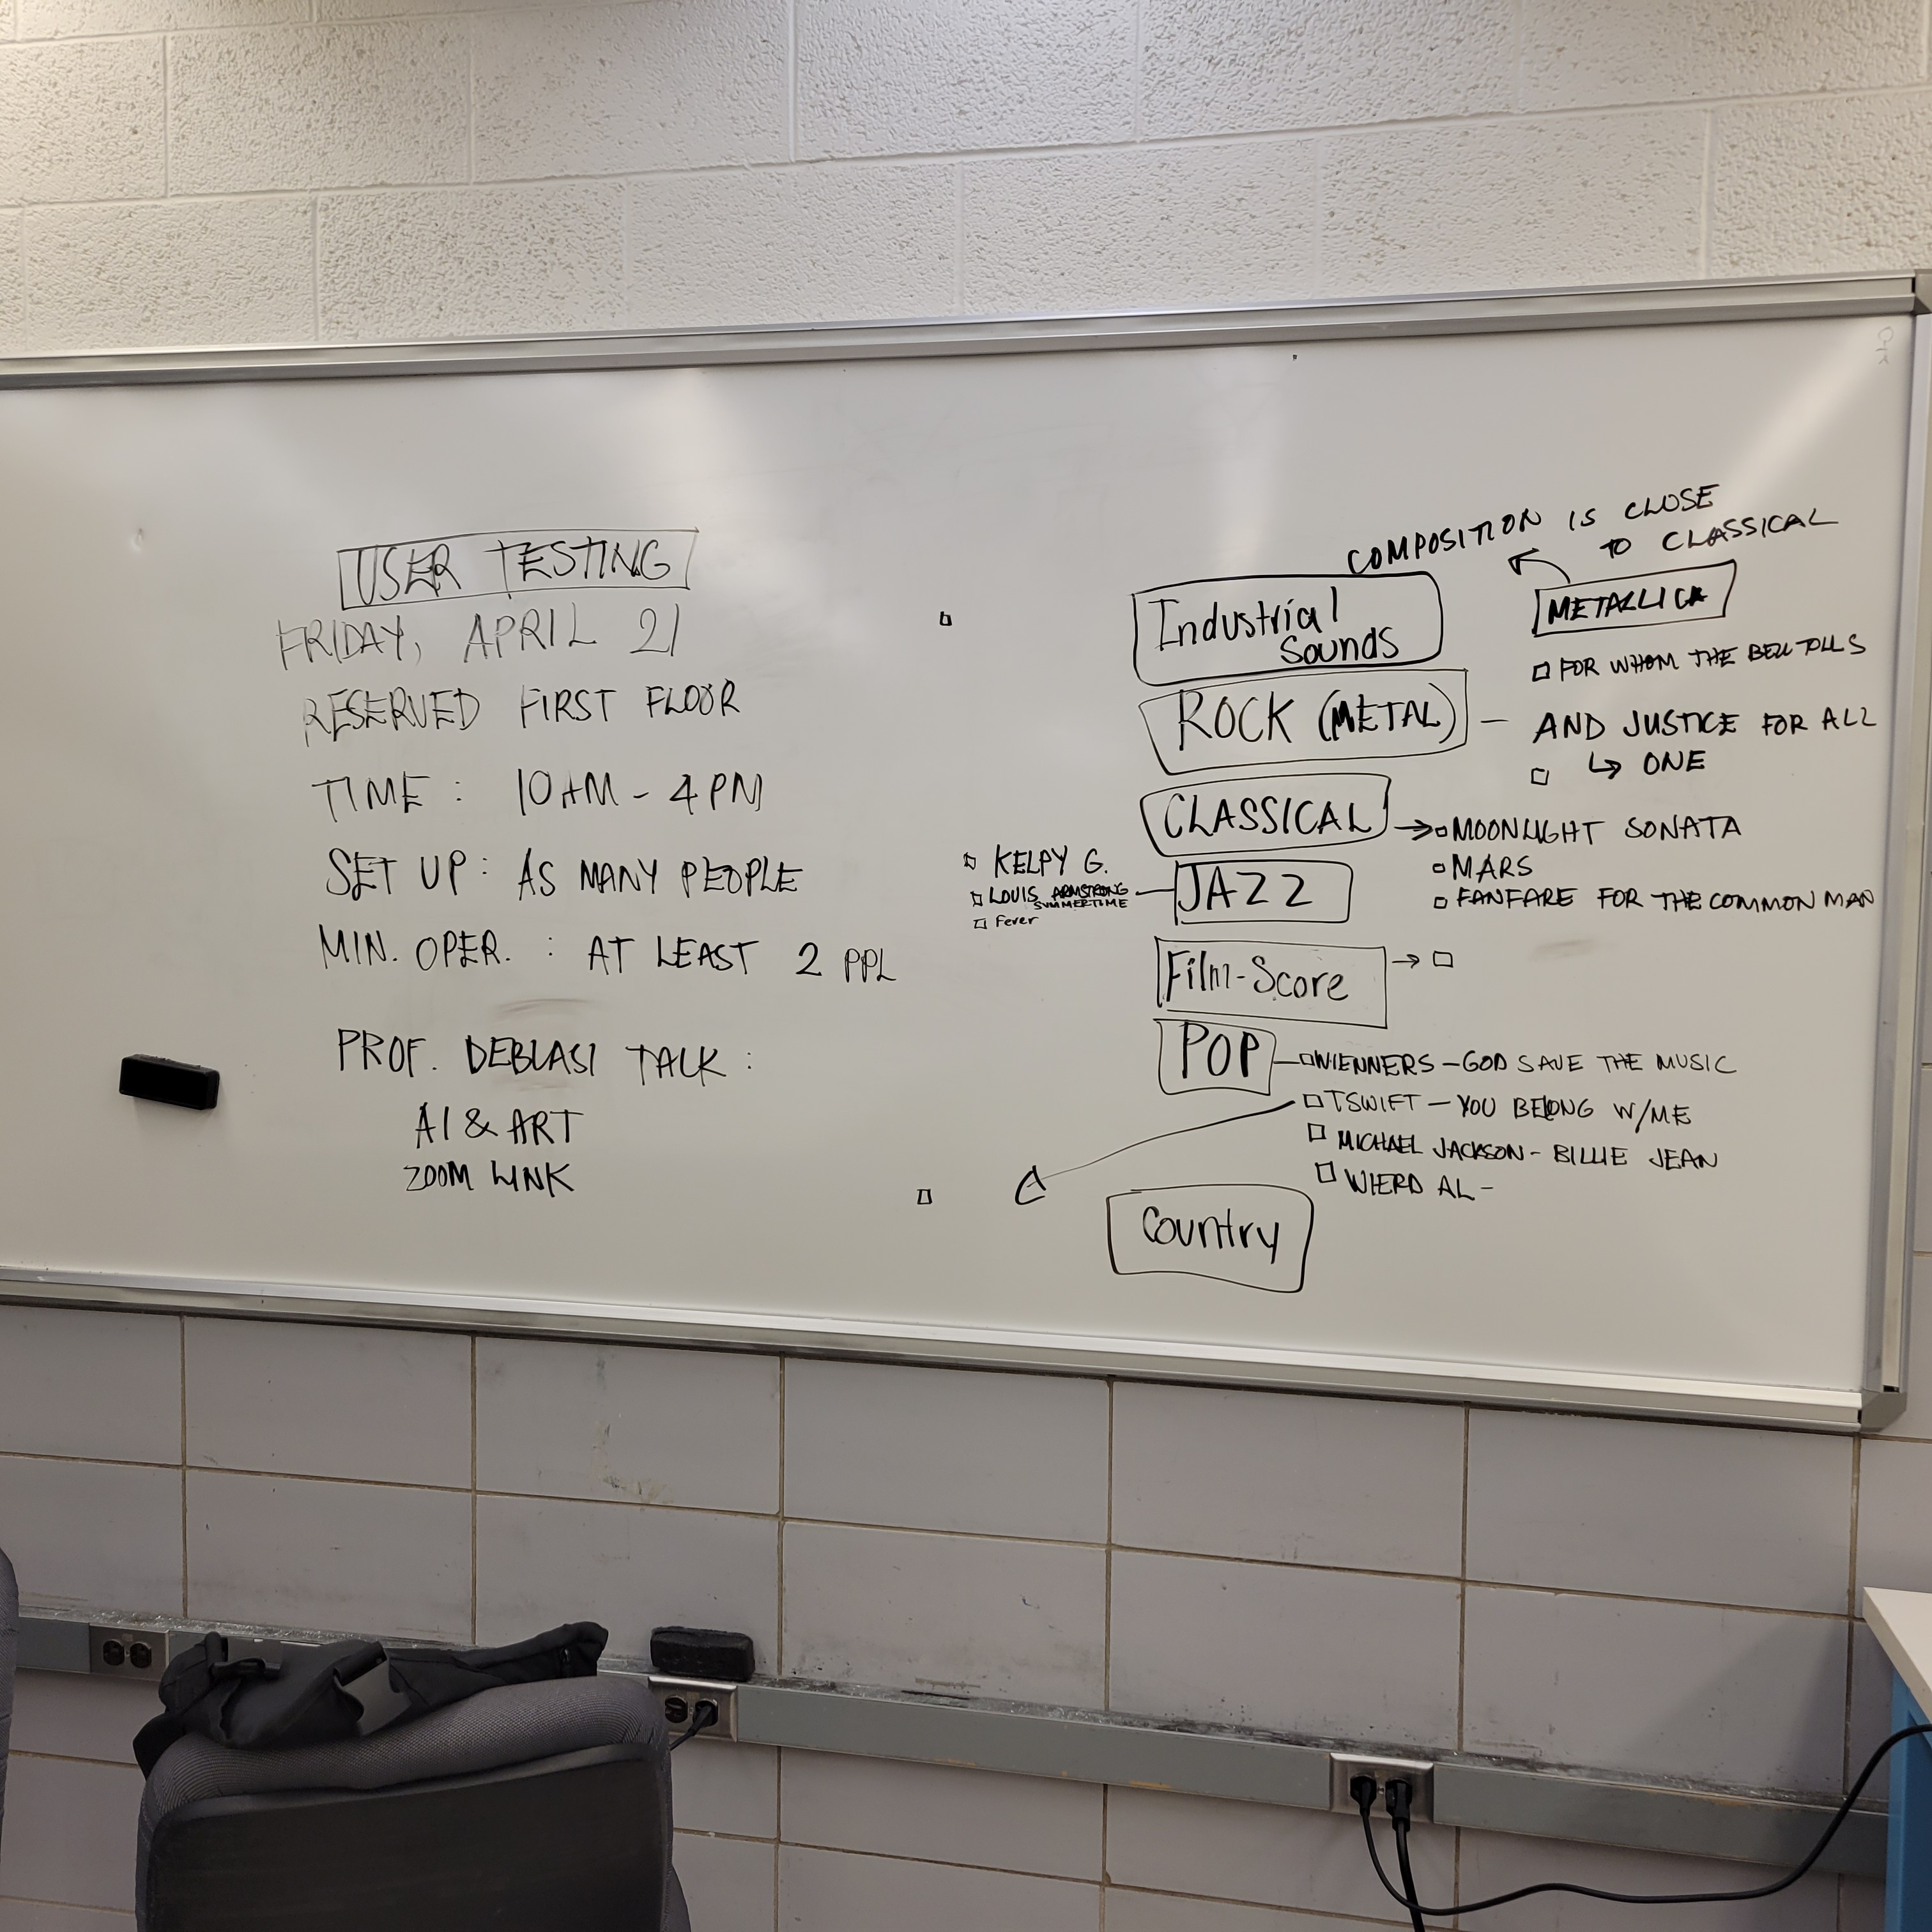 USER TESTING
FRIDAY, APRIL 21
RESERVED FIRST FLOOR
TIME : 10AM - 4PM
SET UP : AS MANY PEOPLE
MIN. OPER. : AT LEAST 2 PPL
PROF. DEBLASI TALK :
AI & ART
ZOOM LINK
COMPOSITION IS CLOSE
TO CLASSICAL
METALLICA
FOR WHOM THE BELL TOLLS
Industrial
Sounds
ROCK (METAL) — AND JUSTICE FOR ALL
↳ ONE
CLASSICAL → MOONLIGHT SONATA
MARS
FANFARE FOR THE COMMON MAN
JAZZ
KELPY G.
LOUIS ARMSTRONG
SUMMERTIME
Fever
Film-Score →
POP — WIENNERS - GOD SAVE THE MUSIC
TSWIFT - YOU BELONG W/ME
MICHAEL JACKSON - BILLIE JEAN
WIERD AL -
Country